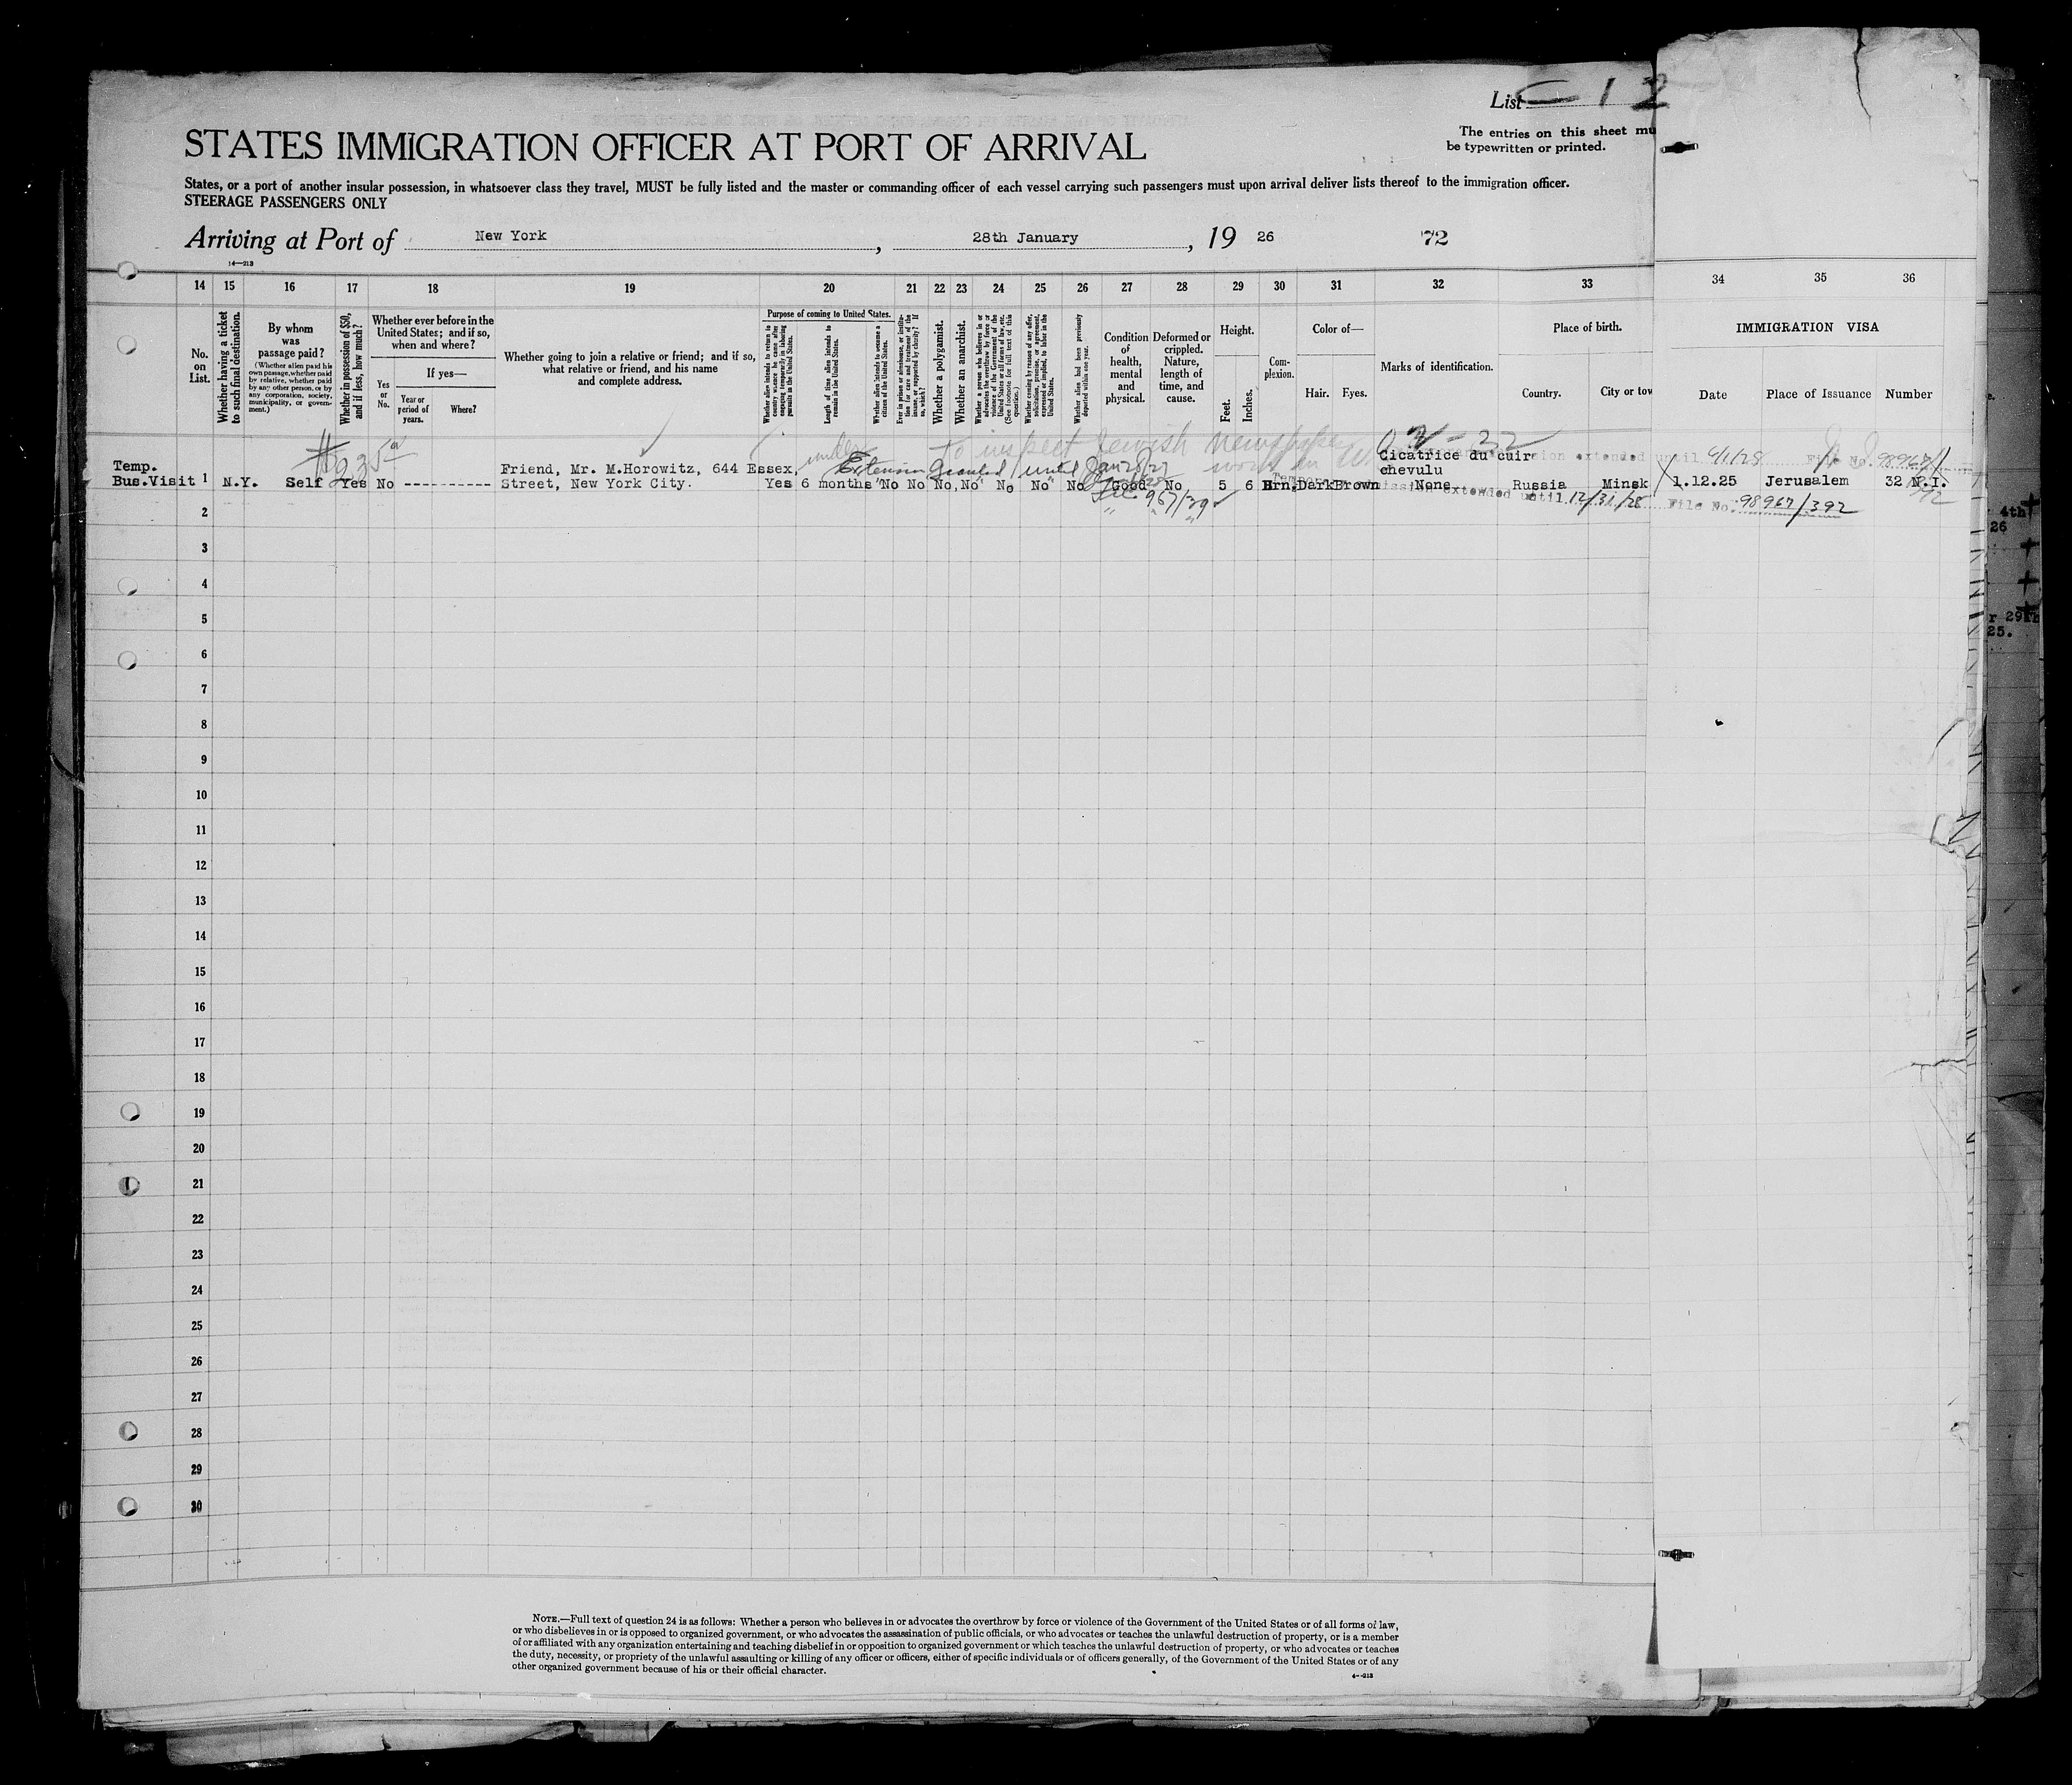 List 12
The entries on this sheet mu
be typewritten or printed.
STATES IMMIGRATION OFFICER AT PORT OF ARRIVAL
States, or a port of another insular possession, in whatsoever class they travel, MUST be fully listed and the master or commanding officer of each vessel carrying such passengers must upon arrival deliver lists thereof to the immigration officer.
STEERAGE PASSENGERS ONLY
Arriving at Port of New York, 28th January, 19 26 72
14—213
14 15 16 17 18 19 20 21 22 23 24 25 26 27 28 29 30 31 32 33 34 35 36
No. on List.
Whether having a ticket to such final destination.
By whom was passage paid?
(Whether alien paid his own passage, whether paid by relative, whether paid by any other person, or by any corporation, society, municipality, or government.)
Whether in possession of $50, and if less, how much?
Whether ever before in the United States; and if so, when and where?
Yes or No.
If yes—
Year or period of years.
Where?
Whether going to join a relative or friend; and if so, what relative or friend, and his name and complete address.
Purpose of coming to United States.
Whether alien intends to return to country whence he came after engaging temporarily in laboring pursuits in the United States.
Length of time alien intends to remain in the United States.
Whether alien intends to become a citizen of the United States.
Ever in prison or almshouse, or institution for care and treatment of the insane, or supported by charity? If so, which?
Whether a polygamist.
Whether an anarchist.
Whether a person who believes in or advocates the overthrow by force or violence of the Government of the United States or all forms of law, etc. (See footnote for full text of this question.)
Whether coming by reason of any offer, solicitation, promise, or agreement, expressed or implied, to labor in the United States.
Whether alien had been previously deported within one year.
Condition of health, mental and physical.
Deformed or crippled. Nature, length of time, and cause.
Height.
Feet. Inches.
Complexion.
Color of—
Hair. Eyes.
Marks of identification.
Place of birth.
Country. City or tow
IMMIGRATION VISA
Date Place of Issuance Number
to inspect Jewish
Temp. Friend, Mr. M.Horowitz, 644 Essex, Extension granted until Jan 28/27 Cicatrice du cuir extended until 4/1/28 File No. 98967/
chevulu
Bus.Visit 1 N.Y. Self Yes No ---------- Street, New York City. Yes 6 months No No No No No No No Good No 5 6 Brn. Dark Brown None Russia Minsk 1.12.25 Jerusalem 32 N.I.
extended until 12/31/28 File No. 98967/392
2
3
4
5
6
7
8
9
10
11
12
13
14
15
16
17
18
19
20
21
22
23
24
25
26
27
28
29
30
4th
26
r 29th
25.
NOTE.—Full text of question 24 is as follows: Whether a person who believes in or advocates the overthrow by force or violence of the Government of the United States or of all forms of law,
or who disbelieves in or is opposed to organized government, or who advocates the assassination of public officials, or who advocates or teaches the unlawful destruction of property, or is a member
of or affiliated with any organization entertaining and teaching disbelief in or opposition to organized government or which teaches the unlawful destruction of property, or who advocates or teaches
the duty, necessity, or propriety of the unlawful assaulting or killing of any officer or officers, either of specific individuals or of officers generally, of the Government of the United States or of any
other organized government because of his or their official character.
4—213